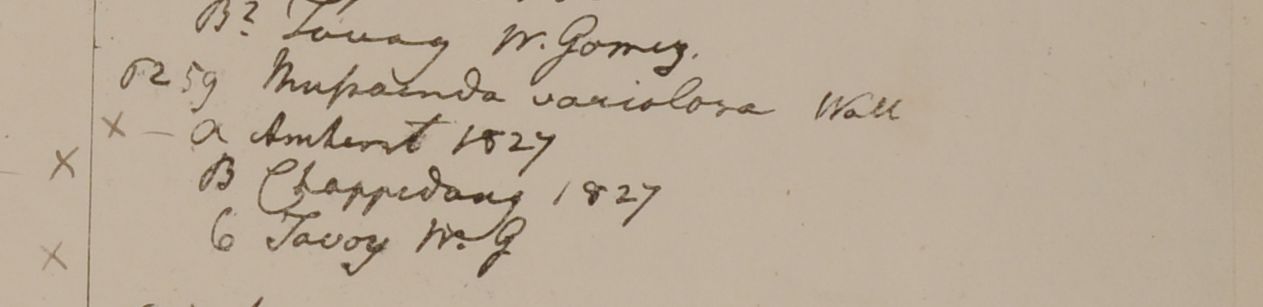 B? Tavoy W. Gomez.
6259 Mussaenda variolosa Wall
x – a Amherst 1827
x B Chappedang 1827
C Tavoy W. G
x